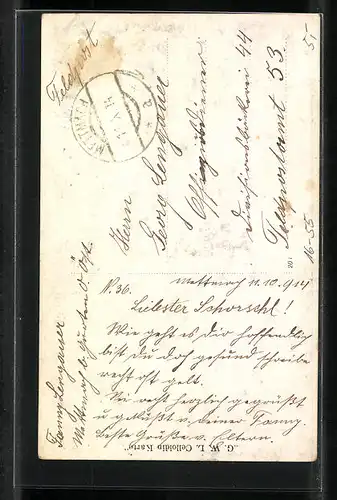 Feldpost
Herrn
Georg Lengauer
Offiziersdiener
Divisionsbäckerei 44
Feldpostamt 53.
N. 36.
Mettmach 11.10.914
Liebester Schorschl!
Wie geht es dir hoffendlich
bist du doch gesund schreibe
recht oft gelt.
Sei recht herzlich gegrüßt
u geküßt v. deiner Fanny.
Beste Grüße v. Eltern.
Fanny Lengauer
Mettmach b. O. Öst.
"G. W. I. L. Celloidin Karte"
16-55
5,